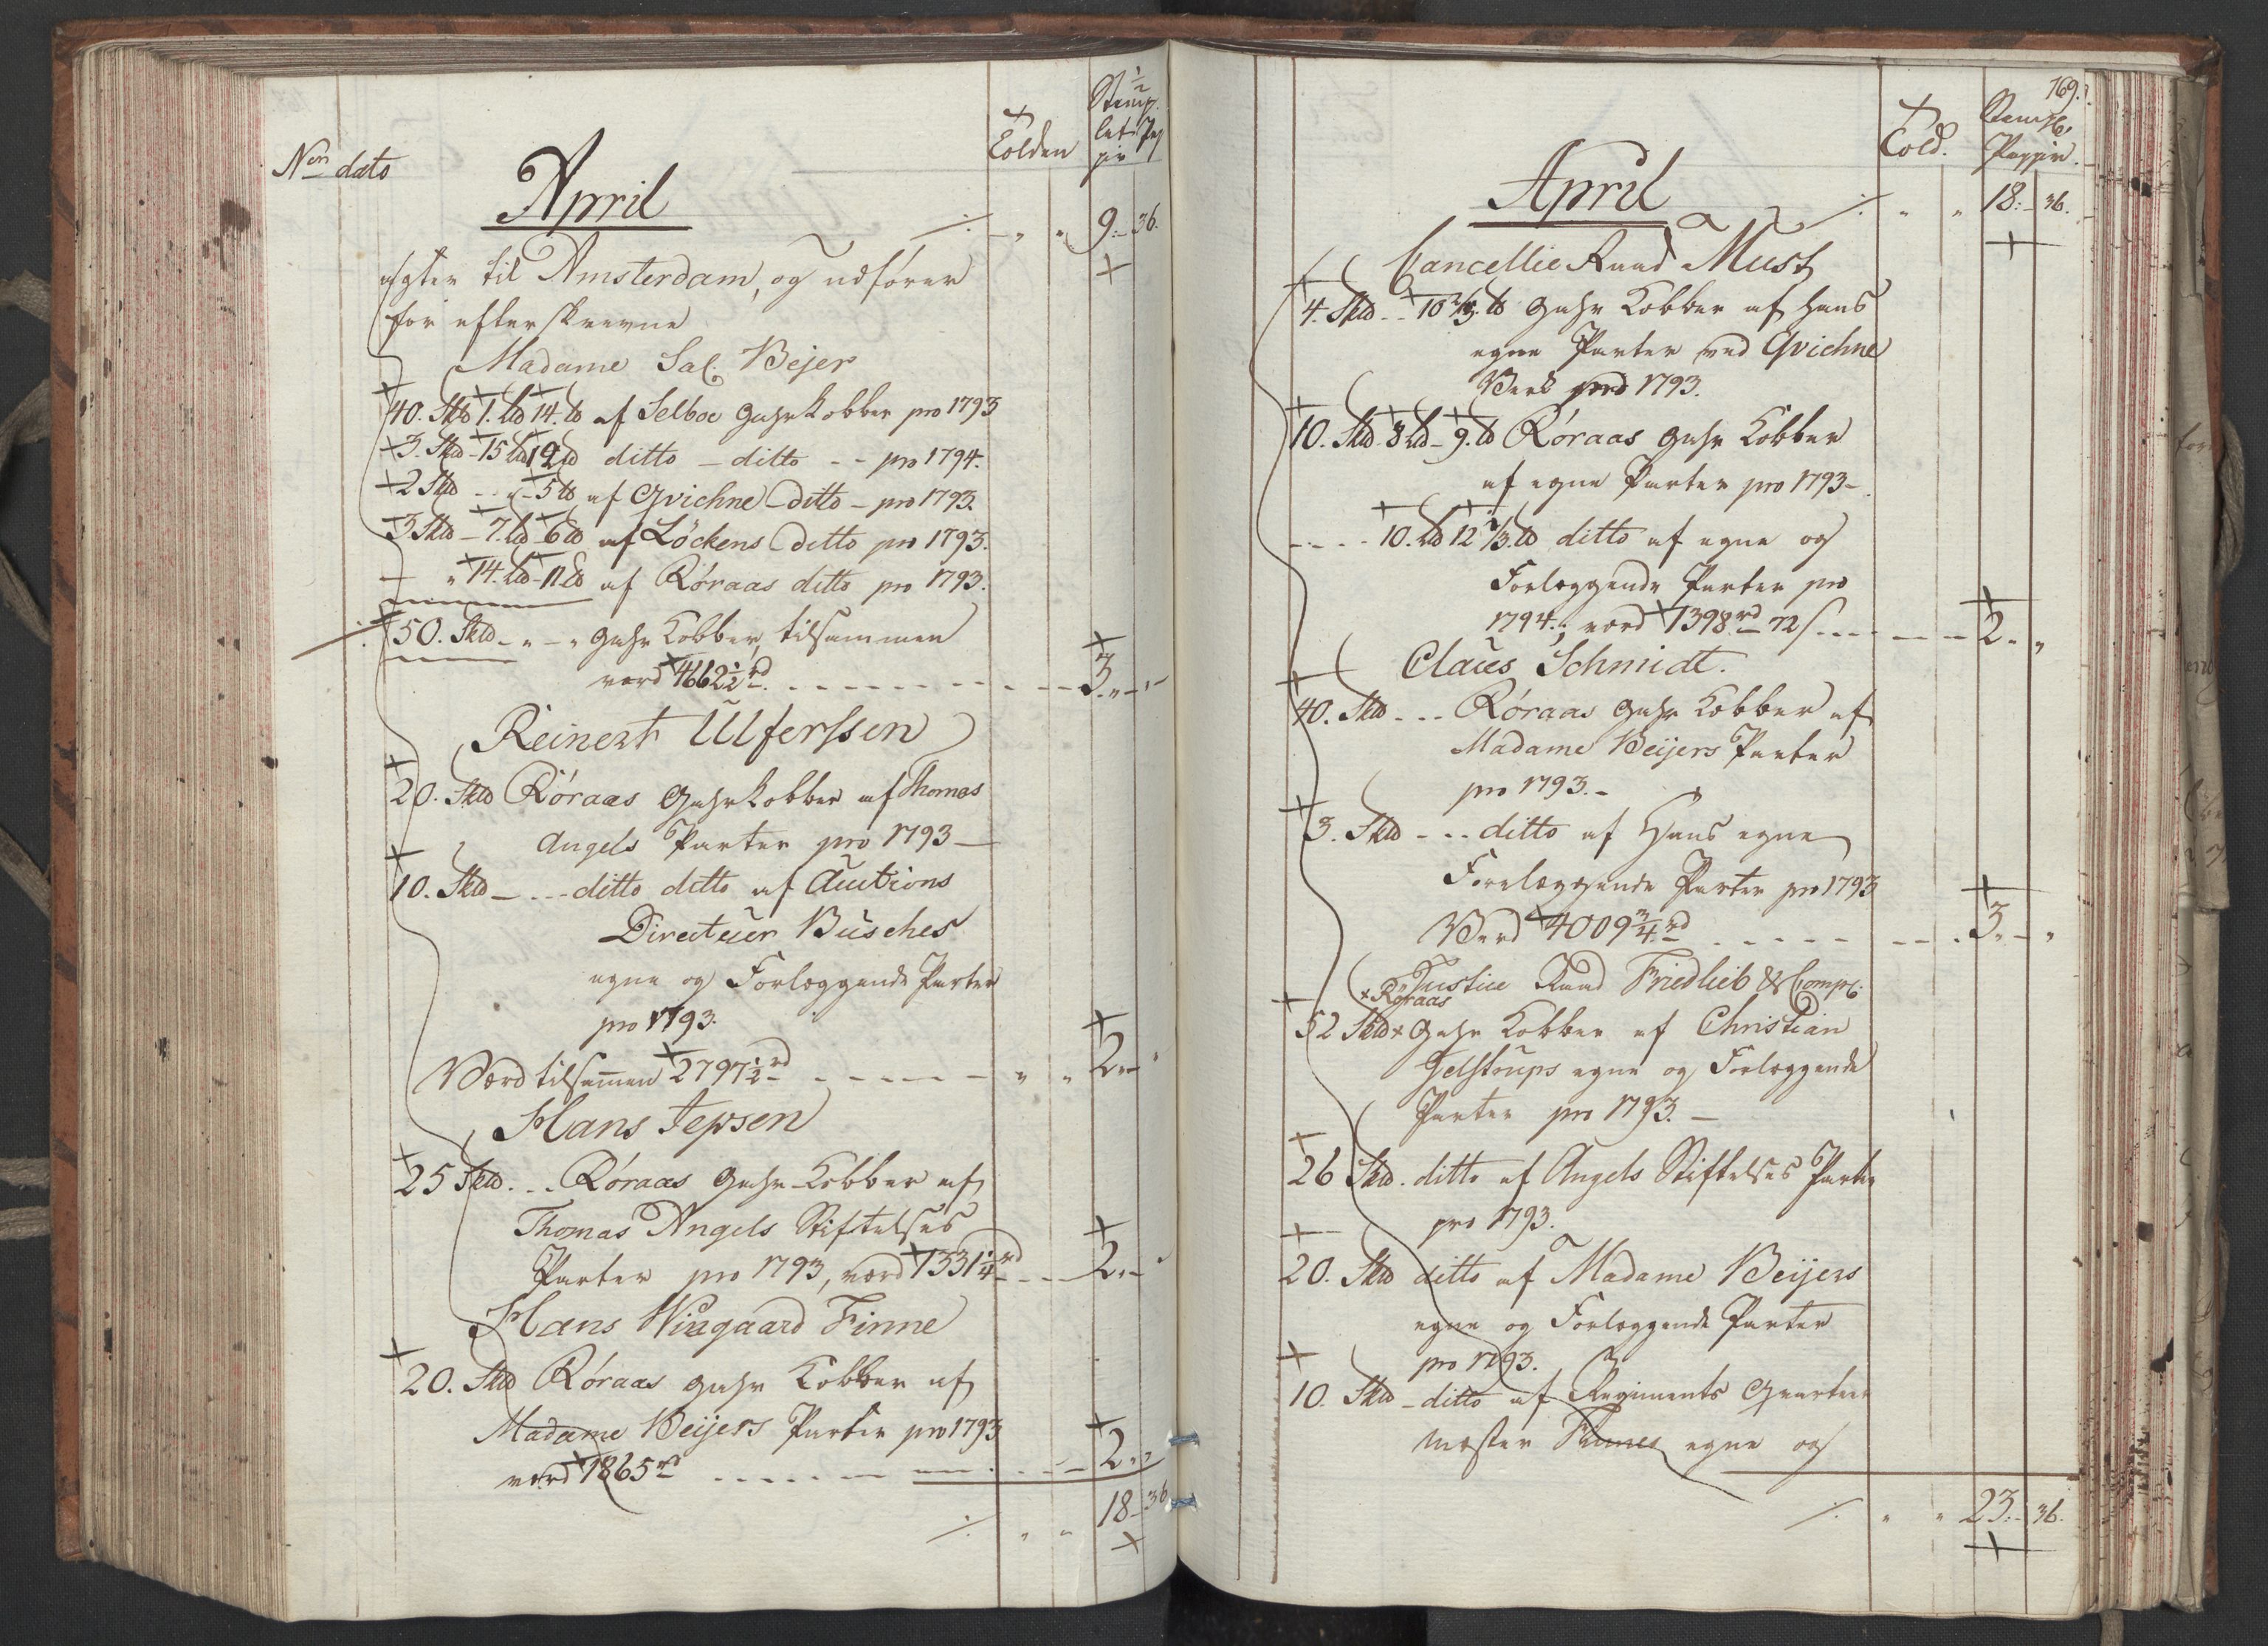 No dato
April
Tolden
Stemp
let Pap
pir
9 36.
agter til Amsterdam, og udfører
for efterskrevne
Madame Sal. Bejer
40. Sktb 1. Ltb 14. tb af Selboe Gahrkobber pro 1793
3. Sktb - 15 Ltb 12 tb ditto - ditto - - pro 1794.
2 Sktb - " - 5 tb af Qvichne ditto - pro 1793.
3. Sktb - 7. Ltb 6 tb af Löckens ditto pro 1793.
" 14. Ltb 11 tb af Röraas ditto pro 1793.
50. Sktb - " - " Gahr Kobber, tilsammen
værd 4662½ rd. 3. " "
Reinert Ulferssen
20. Sktb Röraas Gahrkobber af Thomas
Angels Parter pro 1793 —
10. Sktb - - - ditto ditto af Auctions
Directeur Busches
egne og Forlæggende Parter
pro 1793.
Værd tilsamen 2797½ rd " " 2. "
Hans Jepsen
25 Sktb. - - Röraas Gahr Kobber af
Thomas Angels Stiftelses
Parter pro 1793, værd 1331¼ rd 2. "
Hans Wingaard Finne
20. Sktb Röraas Gahr Kobber af
Madame Beijers Parter pro 1793
værd 1865 rd 2. "
18 36
169.
April
Told.
Stempl.
Pappir.
18. 36.
Cancellie Raad Must
4. Sktb - - 10⅔ tb Gahr Kobber af hans
egne Parter ved Qvichne
Verk pro 1793.
10. Sktb 8 Ltb - 9. tb Röraas Gahr Kobber
af egne Parter pro 1793 -
- - - - 10. Ltb 12⅓ tb ditto af egne og
Forlæggende Parter pro
1794., værd 1398 rd 72 s. 2. "
Claus Schmidt.
40. Sktb - - - Röraas Gahr Kobber af
Madame Beijers Parter
pro 1793. -
3. Sktb - - - ditto af Hans egne
Forelæggende Parter pro 1793
Værd 4009¾ rd 3. "
Justice Raad Friedlieb & Comp:
+ Röraas
52 Sktb + Gahr Kobber af Christian
Gelstrups egne og Forlæggende
Parter pro 1793. —
26 Sktb. ditto af Angels Stiftelses Parter
pro 1793.
20. Sktb ditto af Madame Beijers
egne og Forlæggende Parter
pro 1793.
10. Sktb - ditto af Regiments Qvarteer
mester egne og
23. 36.